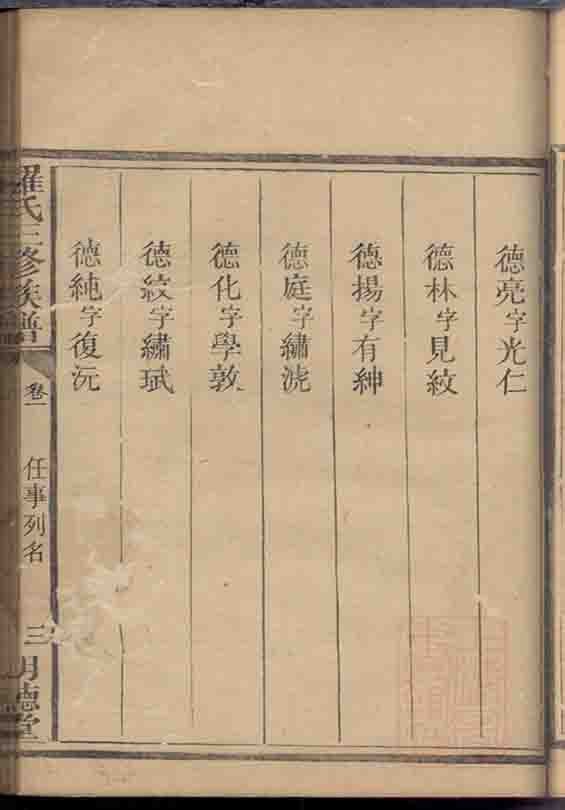 德亮字光仁
德林字見紋
德揚字有紳
德庭字繡浇
德化字學敦
德紋字繡珷
德純字復沅
羅氏三修族譜
卷一
任事列名
三
明德堂